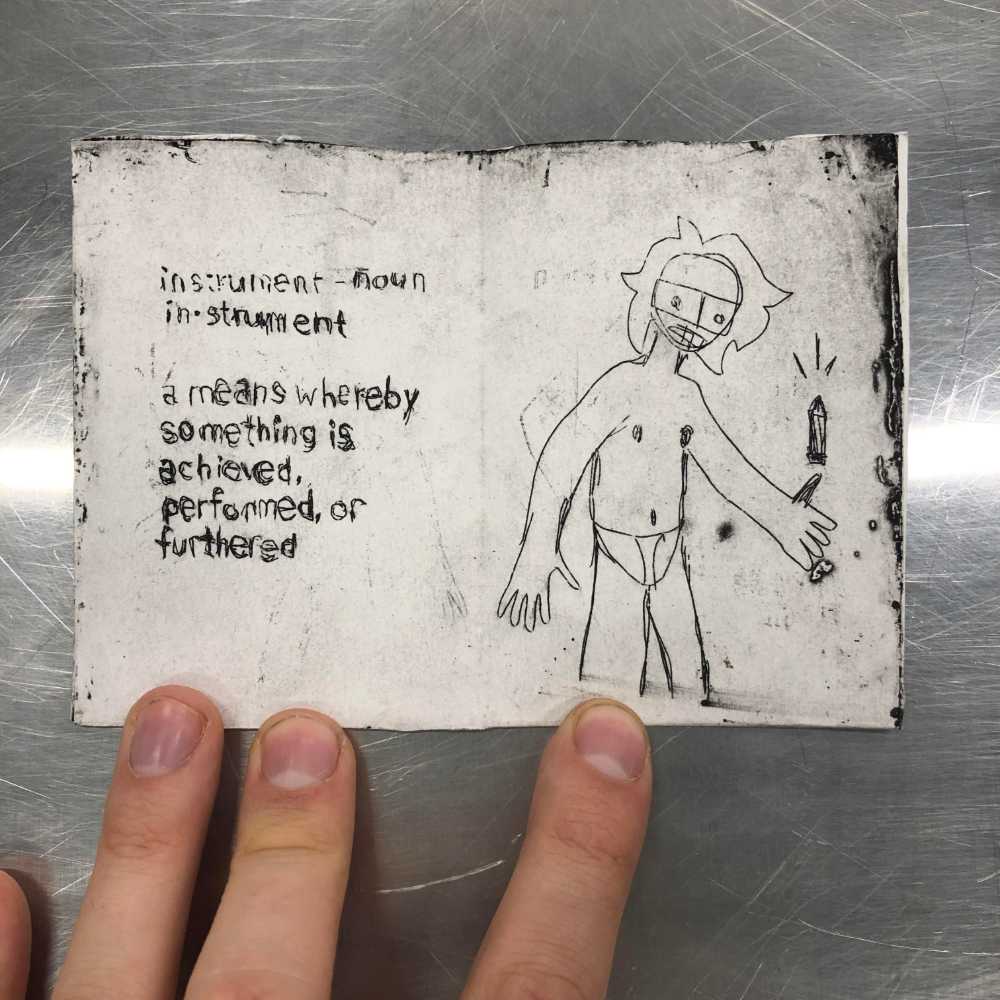 instrument - noun
in·strument
a means whereby
something is
achieved,
performed, or
furthered